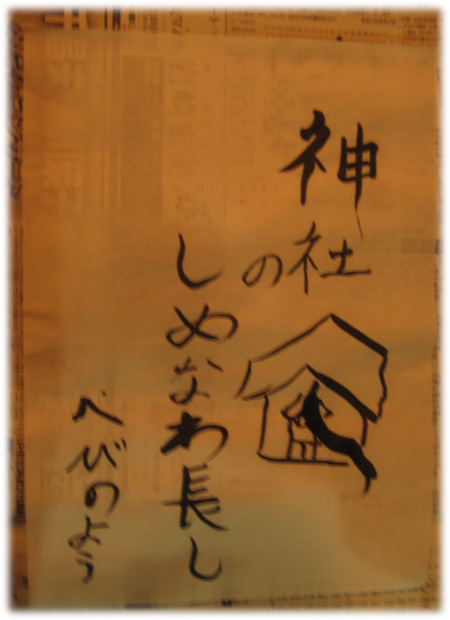 神社の
しめなわ長し
へびのよう